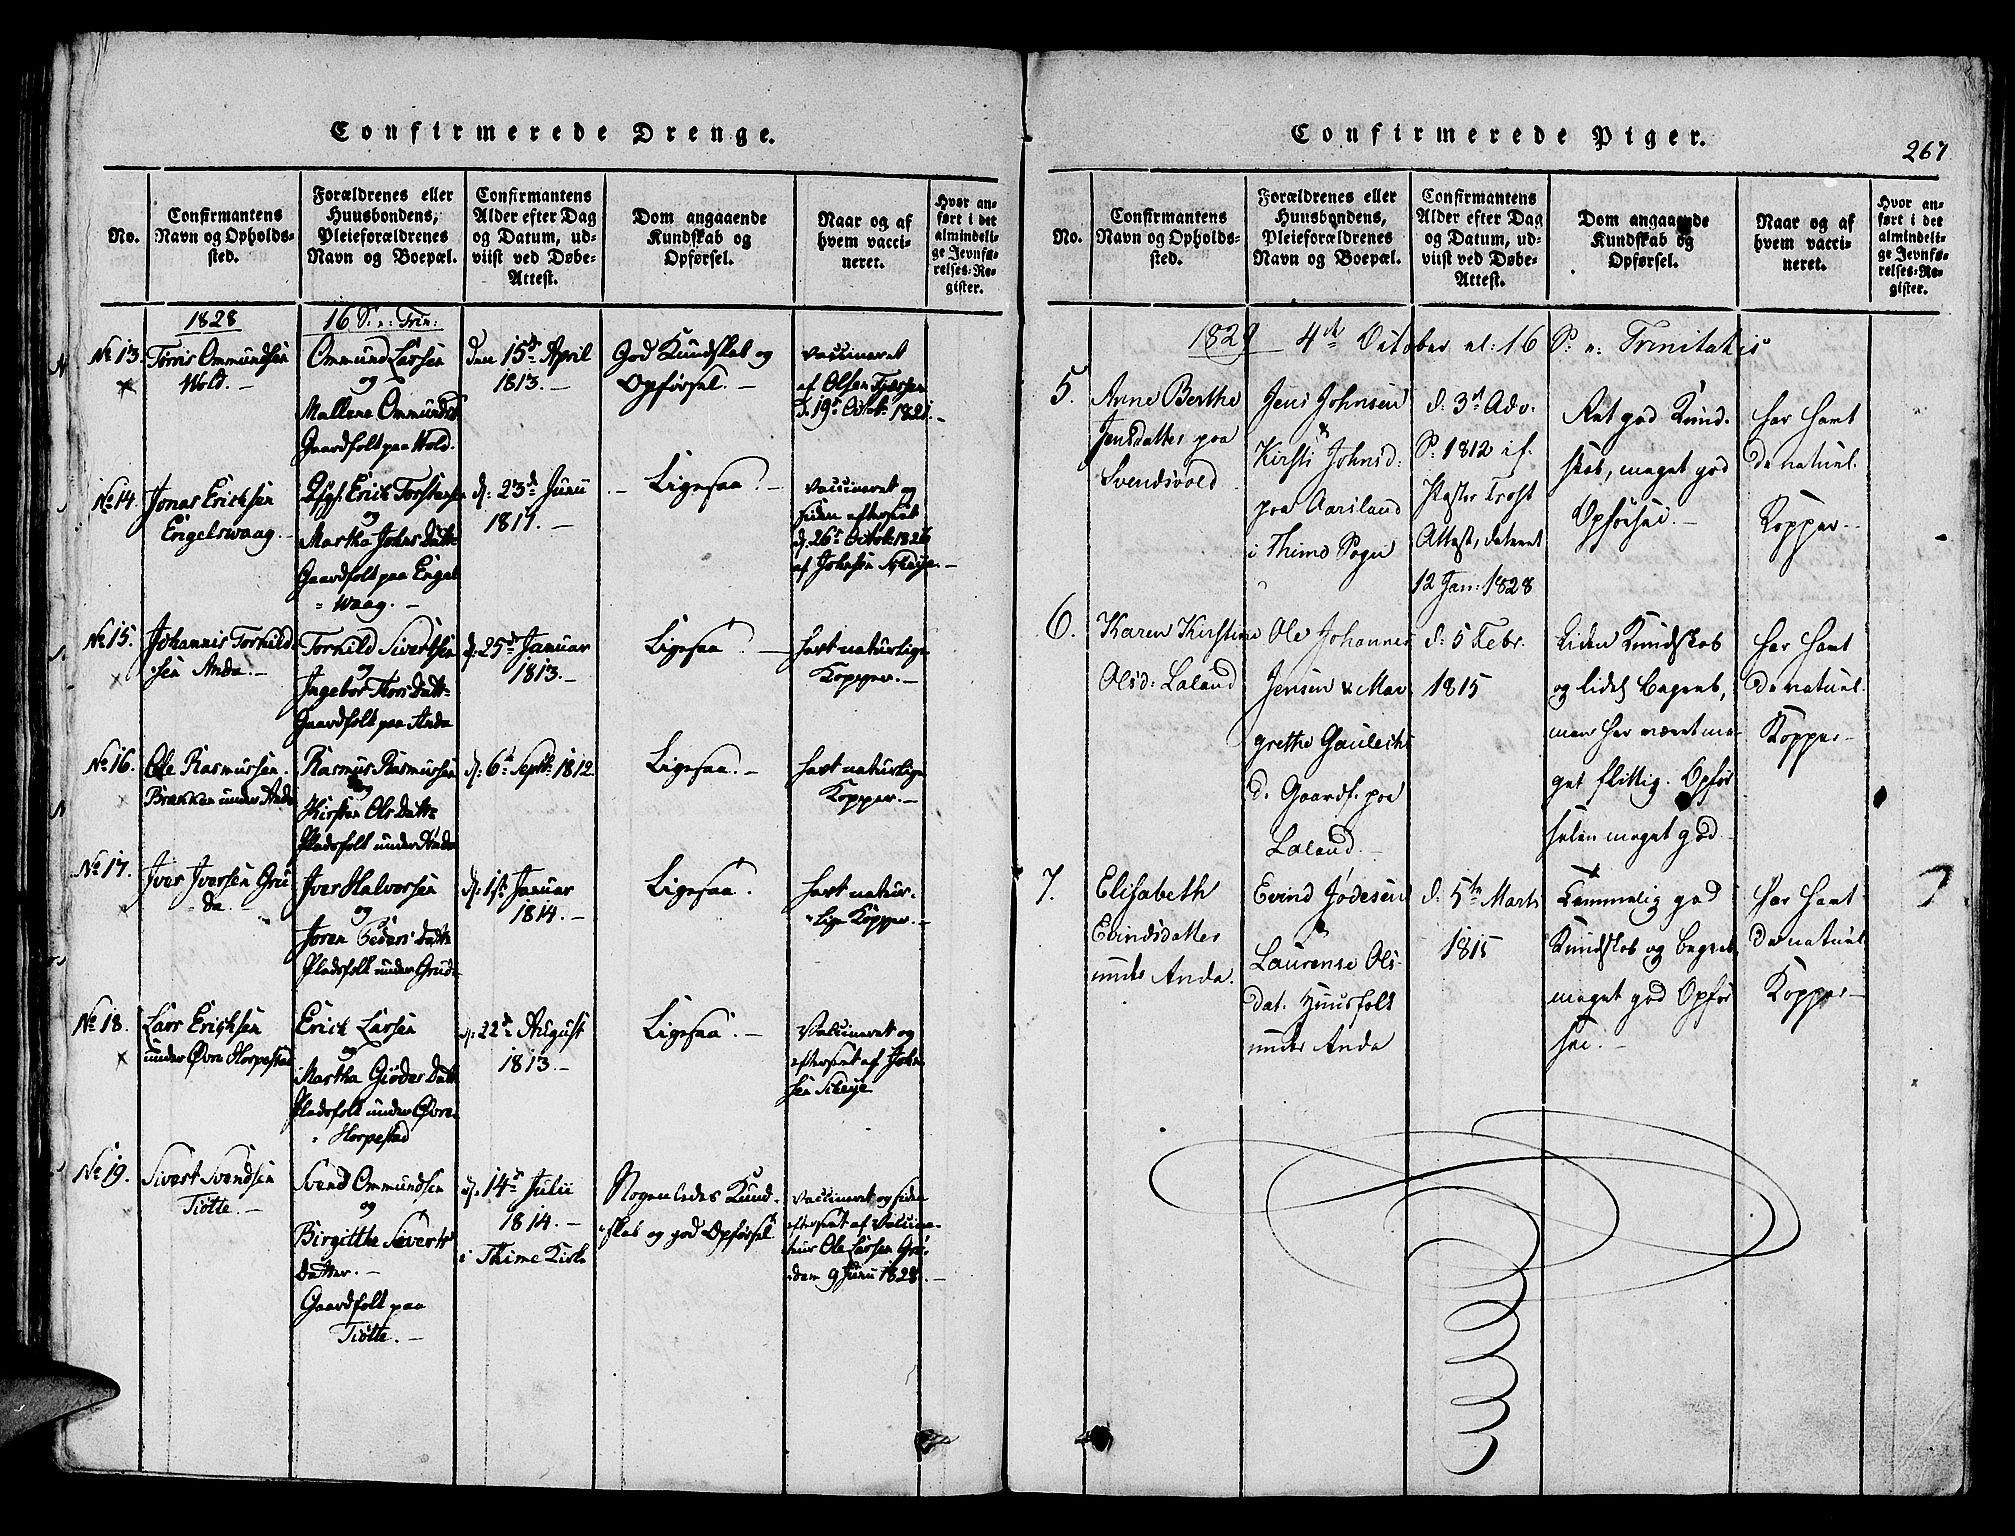 Confirmerede Drenge.
No.
Confirmantens
Navn og Opholds-
sted.
Forældrenes eller
Huusbondens,
Pleieforældrenes
Navn og Boepæl.
Confirmantens
Alder efter Dag
og Datum, ud-
viist ved Døbe-
Attest.
Dom angaaende
Kundskab og
Opførsel.
Naar og af
hvem vacci-
neret.
Hvor an-
ført i det
almindeli-
ge Jevnfø-
relses-Re-
gister.
1828
16 S: e: Trin:
No 13.
Torris Ommundsen
Wold. -
Ommund Larsen
og
Mallene Ommunds
Gaardfolk paa Wold.
den 15de April
1813. -
God Kundskab og
Opførsel. -
vaccineret
af Olsen
d. 19de Octbr: 1821. -
No 14.
Jonas Ericksen
Engelswaag. -
Erick Torstensen
og
Martha Johns Dattr
Gaardfolk paa Engel
" waag. -
d: 23de Junii
1814. -
- Ligesaa. -
vaccineret og
siden efterseet
d. 26de Octob: 1826
af Johnsen Skeije. -
No 15.
Johannis Torkild
"sen Anda. -
Torkild Sivertsen
og
Ingebor Thors Datt:
Gaardfolk paa Anda
d: 25de Januar
1813. -
Ligesaa. -
havt naturlige
Kopper. -
No 16.
Ole Rasmussen.
Brækken under Anda
Rasmus Rasmussen
og
Kirsten Ols Dattr
Pladsfolk under Anda
d: 6te Septbr: 1812.
Ligesaa. -
havt naturlige
Kopper. -
No 17.
Iver Iversen Gru
"da. -
Iver Halvorsen
og
Joren Peders Dattr
Pladsfolk under Gruda
d: 1ste Januar
1814. -
Ligesaa.
havt natur-
"lige Kopper. -
No 18.
Lars Ericksen
under Øvre Horpestad
Erick Larsen
og
Martha Giødes Datt
Pladsfolk under Øvre
" Horpestad
d: 22de August
1813. -
Ligesaa. -
Vaccineret og
efterseet af John
sen Skeije
No 19.
Sivert Svendsen
Tiøtte. -
Svend Ommundsen
og
Birgitthe Siverts
Datter. -
Gaardfolk paa
Tiøtte. -
d: 14de Julii
1814. -
i Thime Kirke
Nogenledes Kund-
"skab og god Opførsel
vaccineret og siden
efterseet af Vaccina-
teur Ole Larsen Gru-
"den 9 Junii 1828. -
Confirmerede Piger.
267
No.
Confirmantens
Navn og Opholds-
sted.
Forældrenes eller
Huusbondens,
Pleieforældrenes
Navn og Boepæl.
Confirmantens
Alder efter Dag
og Datum, ud-
viist ved Døbe-
Attest.
Dom angaaende
Kundskab og
Opførsel.
Naar og af
hvem vacci-
neret.
Hvor an-
ført i det
almindeli-
ge Jevnfø-
relses-Re-
gister.
1829 4de October el: 16 S: e: Trinitatis
5.
Anne Berthe
Jensdatter paa
Svendsvold
Jens Johnsen
&
Kirsti Johnsd:
paa Aarsland
i Thime Sogn
d: 3de Adv.
S: 1812 if.
Pastor Trost
Attest, dateret
12 Jan: 1828
Ret god Kund-
skab, meget god
Opførsel. -
har havt
de naturl.
Kopper. -
6.
Karen Kirstine
Olsd: Laland
Ole Johannes
Jensen & Mar
grethe
d. Gaardf. paa
Laland. -
d: 5 Febr.
1815
Liden Kundskab
og lidet Begreb,
men har været me
get flittig. Opfør
selen meget god
har havt
de naturl.
Kopper -
7.
Elisabeth
Evindsdatter
under Anda.
Evind Jødesen
&
Laurense Ols-
dat. Huusfolk
under Anda
d: 5te Marts
1815
Temmelig god
Kundskab og Begreb
meget god Opfør
sel. -
har havt
de naturl.
Kopper -